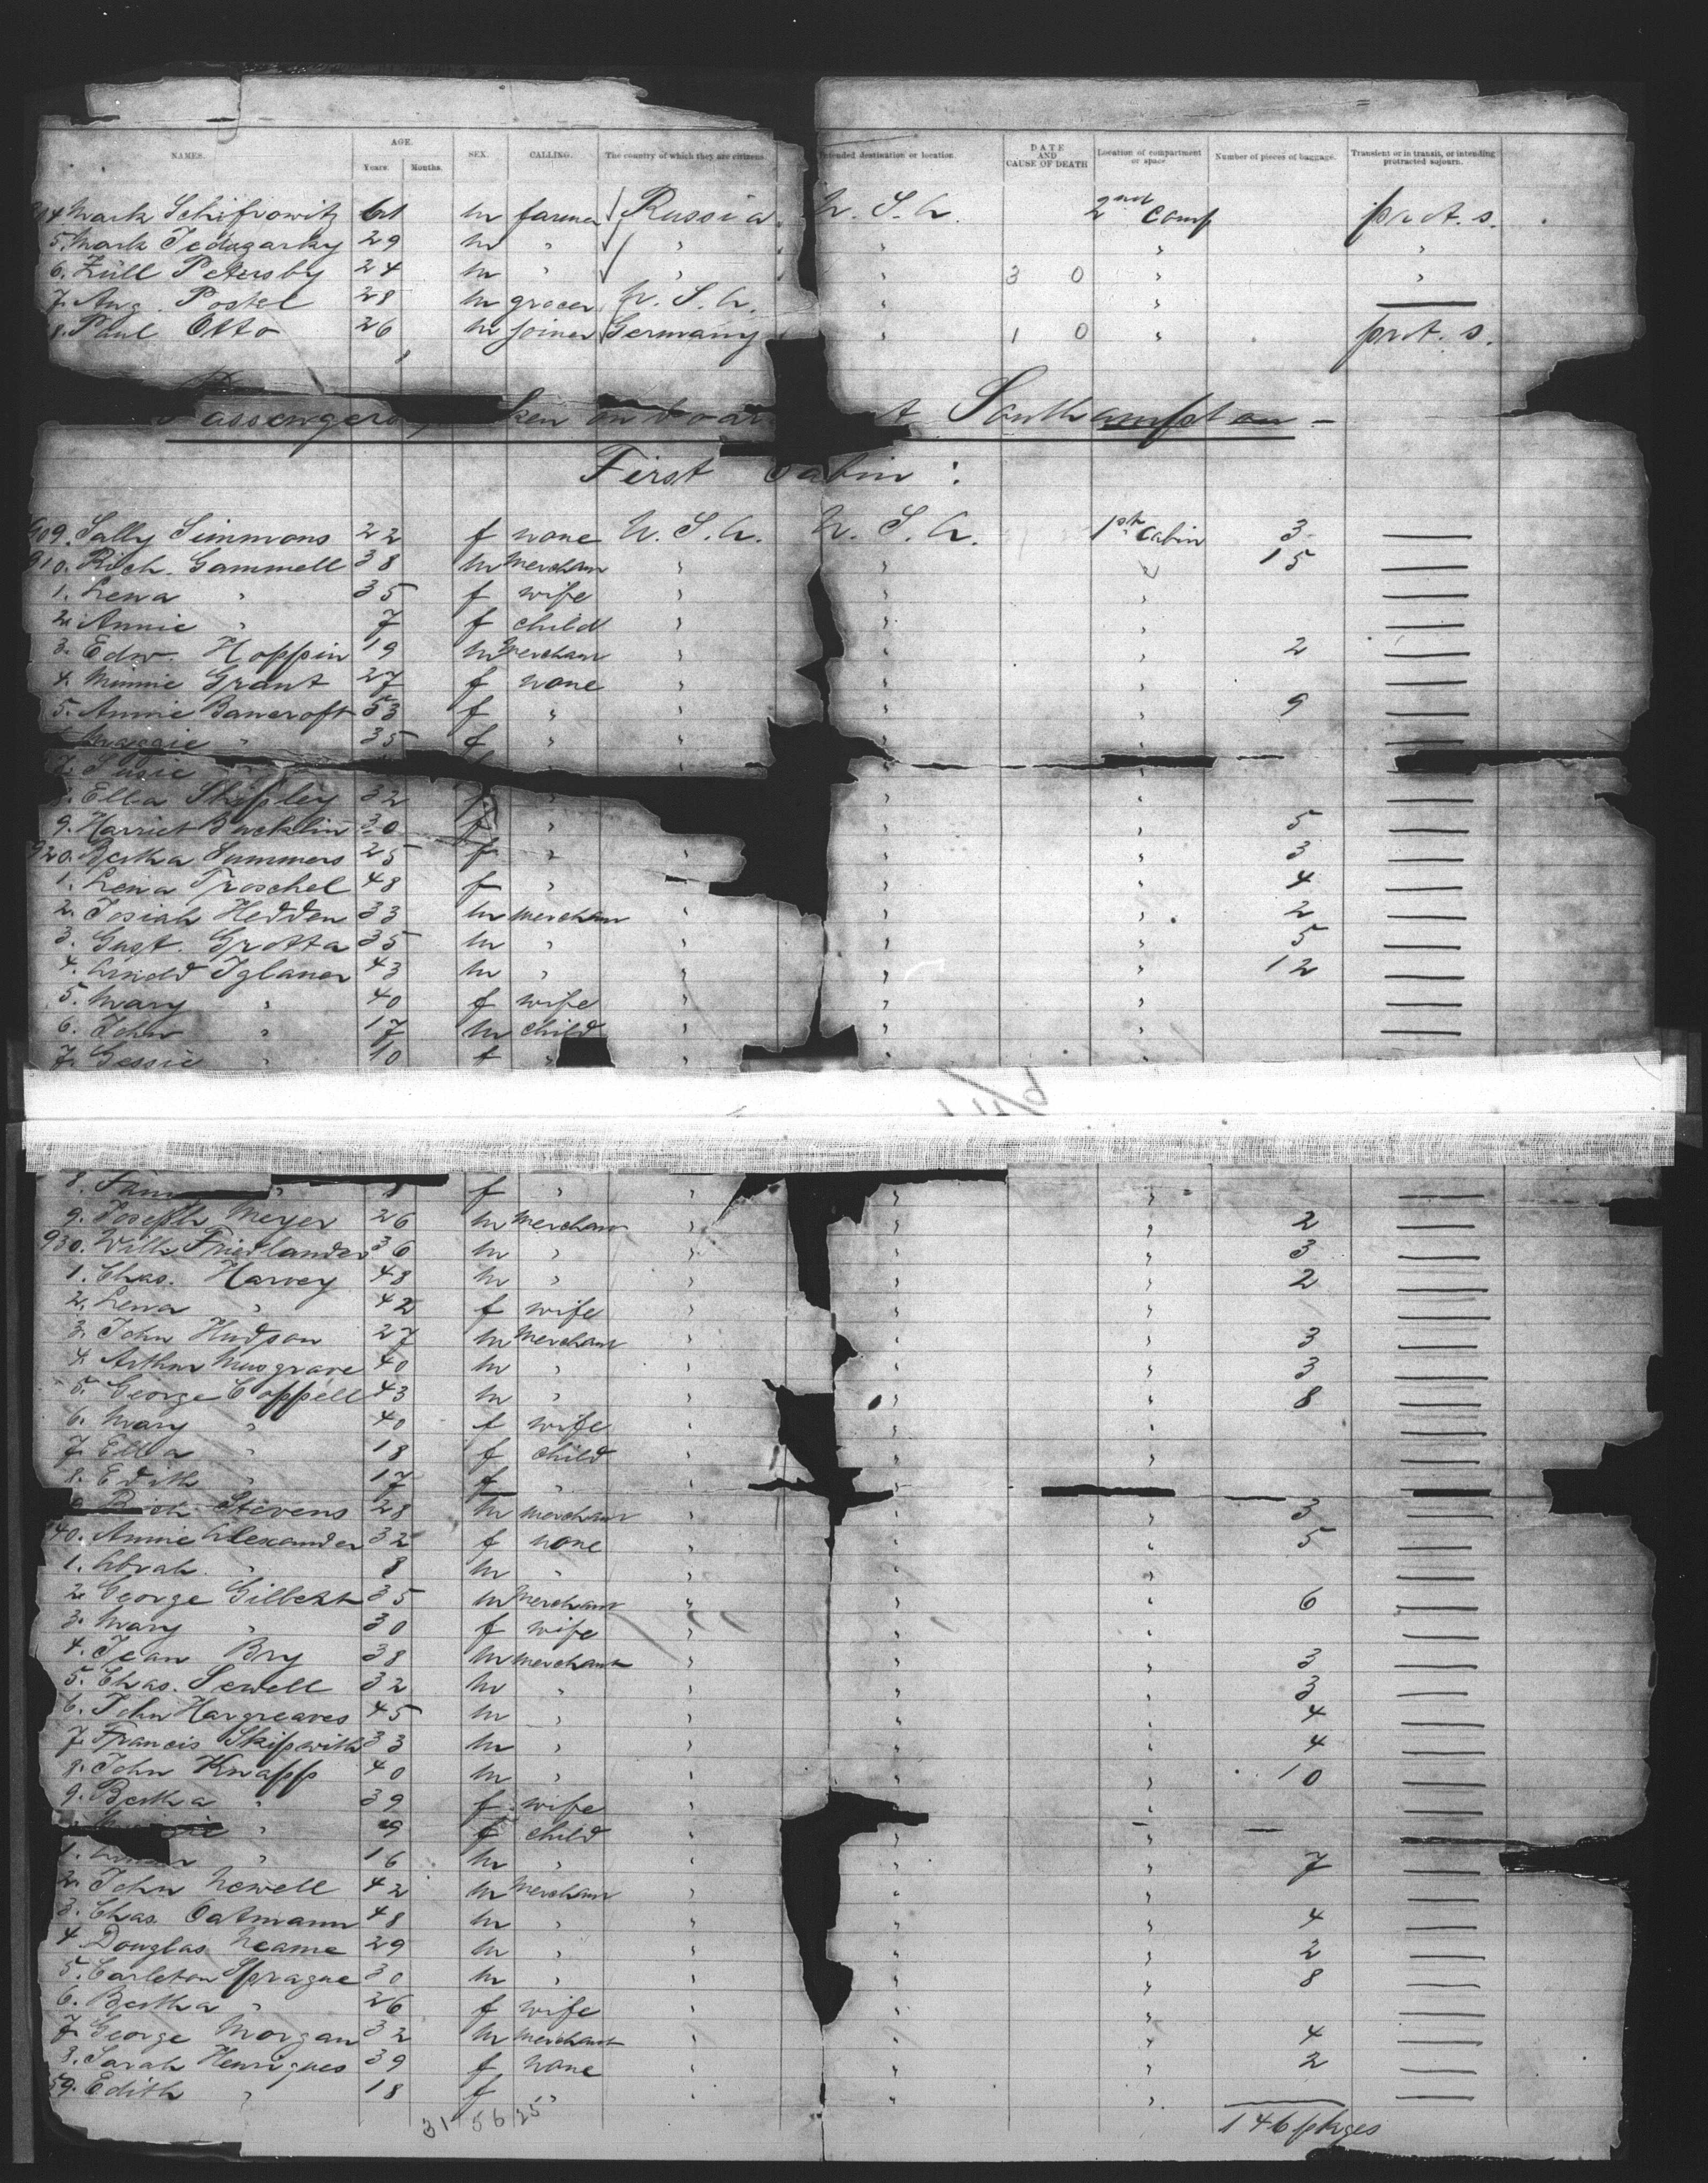 NAMES. AGE. Years. Months. SEX. CALLING. The country of which they are citizens. Intended destination or location. DATE AND CAUSE OF DEATH Location of compartment or space Number of pieces of baggage. Transient or in transit, or intending protracted sojourn.
4 Mark Schifrowitz 61 m farmer Russia U.S.A. 2nd Comp prot. s.
5. Mark " 29 m " " " " "
6. Züll Petersby 24 m " " " 3 0 " "
7. Aug. Postel 28 m grocer U.S.A. " " —
8. Paul Otto 26 m joiner Germany " 1 0 " prot. s.
Passengers ken on boar t Southampton –
First Cabin :
909. Sally Simmons 22 f none U.S.A. U.S.A. 1st Cabin 3 —
910. Rich. Gammell 38 m merchan " " " 15 —
1. Lena " 35 f wife " " " —
2. Annie " 7 f child " " " —
3. Edw. Hoppin 19 m merchan " " " 2 —
4. Minnie Grant 27 f none " " " —
5. Annie Bancroft 53 f " " " " 9 —
Maggie " 35 f " " " " —
7. Susie " " " "
8. Ella Shipley 32 f " " " —
9. Harriet Bucklin 30 f " " " 5 —
920. Bertha Summers 25 f " " " " 3 —
1. Lena Troschel 48 f " " " 4 —
2. Josiah Hedden 33 m merchan " " " 2 —
3. Gust. Grotta 35 m " " " " 5 —
4. Arnold Iglauer 43 m " " " " 12 —
5. Mary " 40 f wife " " " —
6. John " 17 m child " " " —
7. Gessie " 10 f " " " "
8. f " " " " —
9. Joseph Meyer 26 m merchan " " " 2 —
930. Wilh. Friedlander 36 m " " " " 3 —
1. Chas. Harvey 48 m " " " " 2 —
2. Lena " 42 f wife " " " —
3. John Hudson 27 m merchan " " " 3 —
4. Arthur Musgrave 40 m " " " " 3 —
5. George Coppell 43 m " " " " 8 —
6. Mary " 40 f wife " " " —
7. Ella " 18 f child " " " —
8. Edith " 17 f " " " " —
Stevens 28 m merchan " " " 3 —
40. Annie Alexander 32 f none " " " 5 —
1. Abrah. " 8 m " " " " —
2. George Gilbert 35 m merchan " " " 6 —
3. Mary " 30 f wife " " " —
4. Jean Bry 38 m merchant " " " 3 —
5. Chas. Sewell 32 m " " " " 3 —
6. John Hargreaves 45 m " " " " 4 —
7. Francis Skipwith 33 m " " " " 4 —
8. John Knapp 40 m " " " " 10 —
9. Bertha " 39 f wife " " " —
" 9 f child " " " —
1. " 16 m " " " " 7 —
2. John Newell 42 m merchan " " " —
3. Chas. Oatmann 48 m " " " " 4 —
4. Douglas Neame 29 m " " " " 2 —
5. Carleton Sprague 30 m " " " " 8 —
6. Bertha " 26 f wife " " " —
7. George Morgan 32 m merchant " " " 4 —
8. Sarah Henriques 39 f none " " " 2 —
59. Edith " 18 f " " " " —
31 56 25 146 pkges